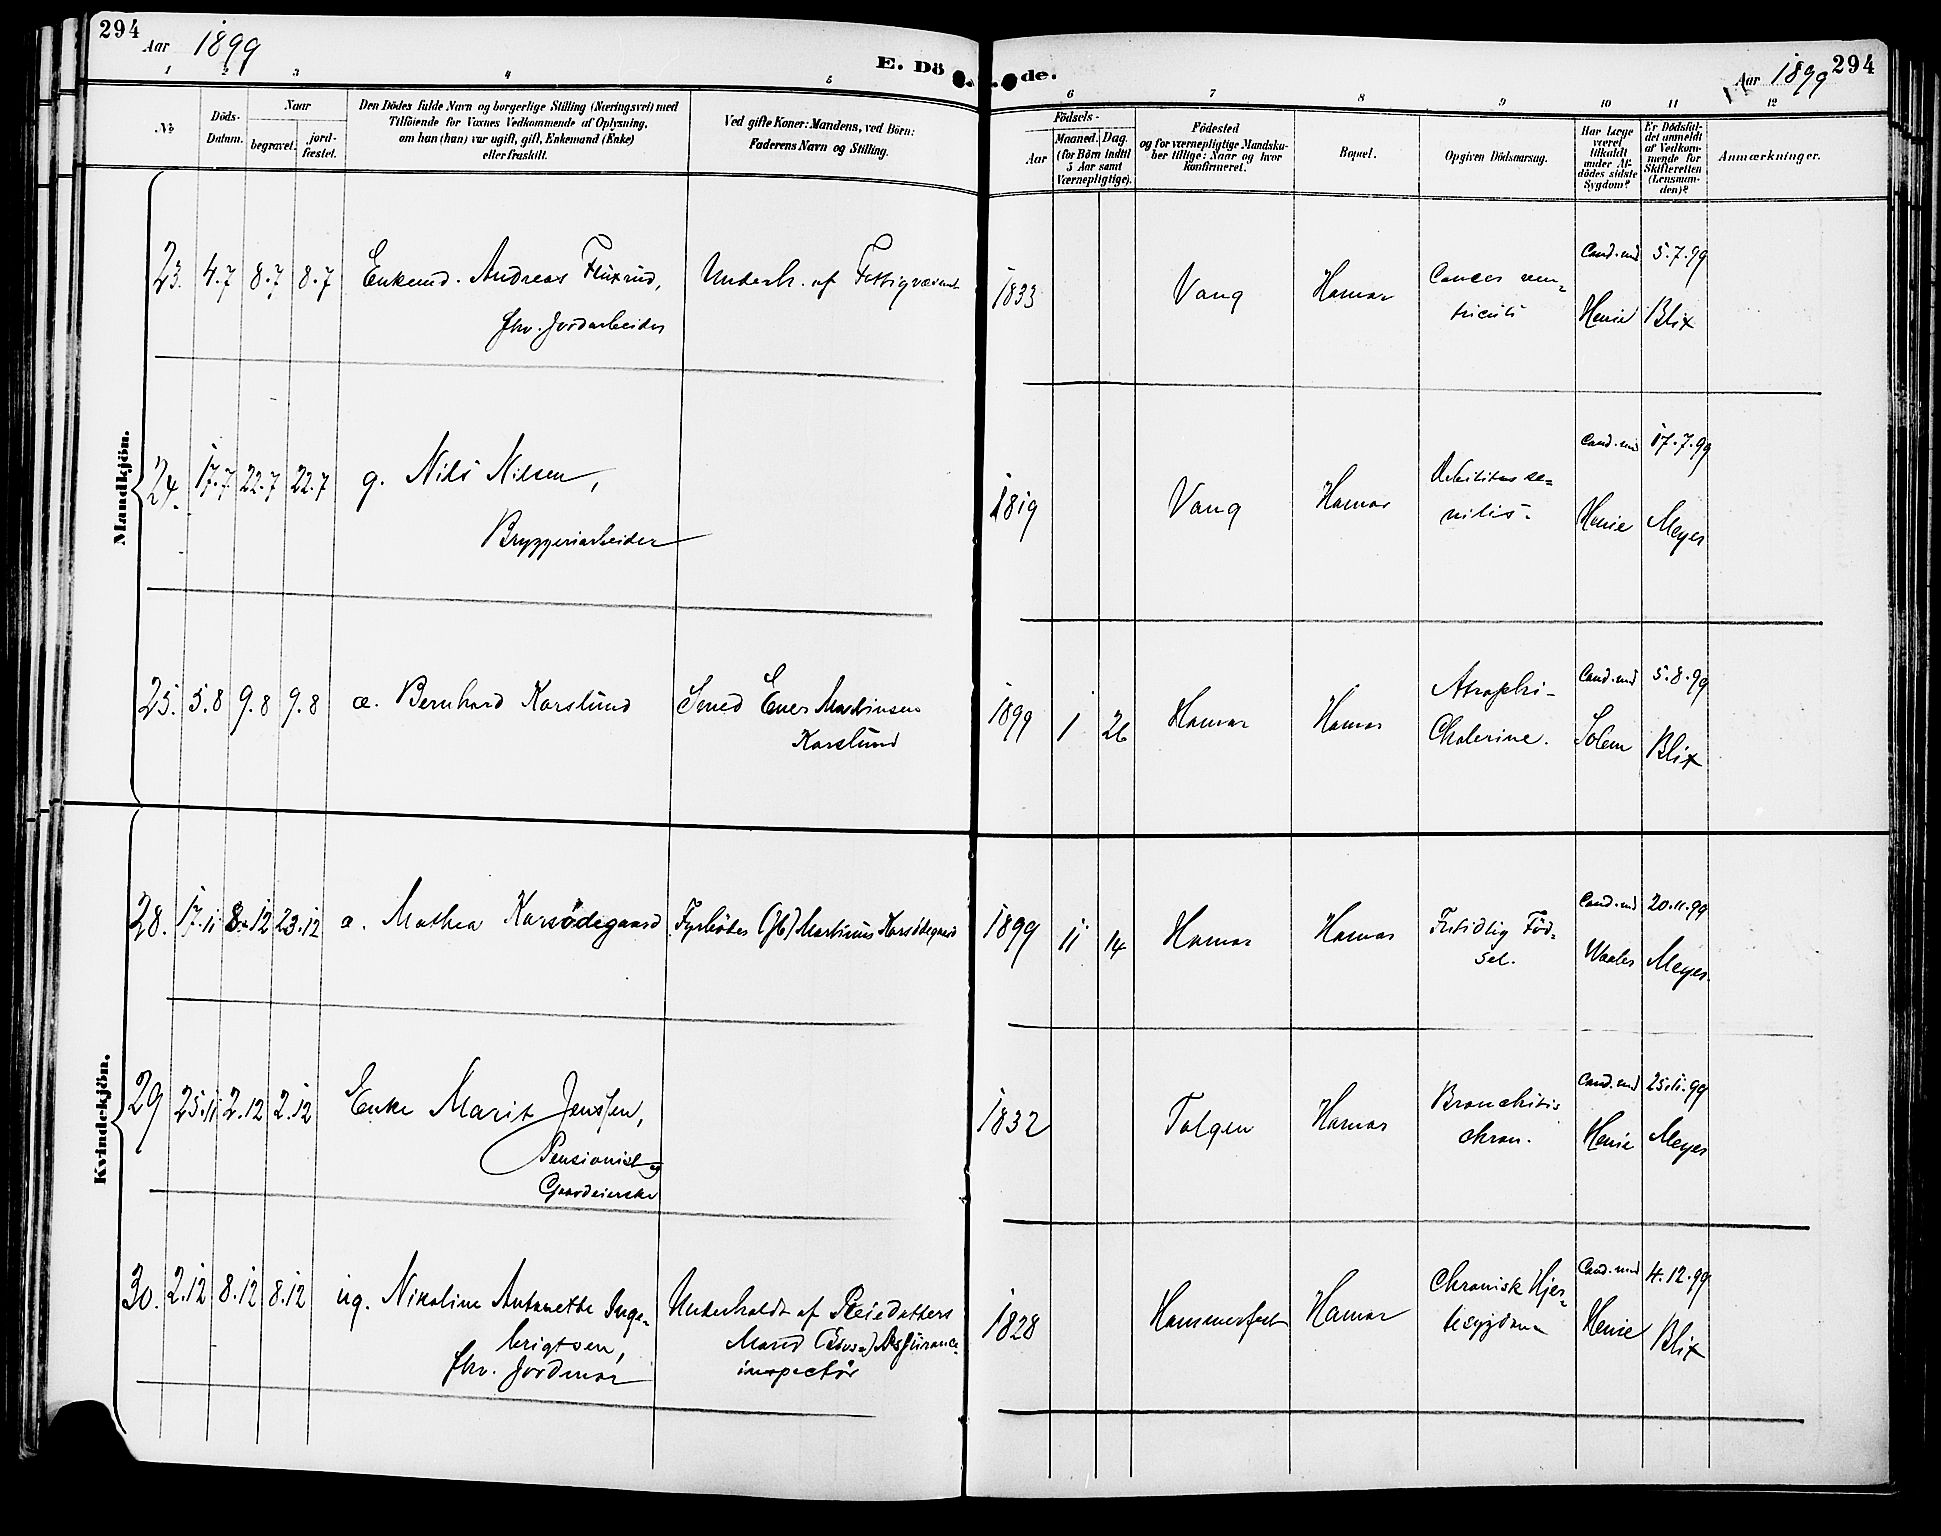 294
Aar 1899
E. Dö
de.
Aar 1899
294
1 2 3 4 5 6 7 8 9 10 11 12
No
Döds-
Datum.
Naar
begravet.
jord-
fæstet.
Den Dödes fulde Navn og borgerlige Stilling (Næringsvei) med
Tilföiende for Voxnes Vedkommende af Oplysning,
om han (hun) var ugift, gift, Enkemand (Enke)
eller fraskilt.
Ved gifte Koner: Mandens, ved Börn:
Faderens Navn og Stilling.
Födsels-
Aar
Maaned. Dag.
(for Börn indtil
5 Aar samt
Værnepligtige).
Födested
og for værnepligtige Mandska-
ber tillige: Naar og hvor
Konfirmeret.
Bopæl.
Opgiven Dödsaarsag.
Har Læge
været
tilkaldt
under Af-
dödes sidste
Sygdom?
Er Dödsfal-
det anmeldt
af Vedkom-
mende for
Skifteretten
(Lensman-
den)?
Anmærkninger.
Mandkjön.
23. 4.7 8.7 8.7 Enkemd. Andreas
fhv. Jordarbeider
Underh. af Fattigvæsenet
1833 Vang Hamar Cancer ven=
triculi
Cand. med
Henie
5.7.99
Blix
24. 17.7 22.7 22.7 g. Nils Nilsen,
Bryggeriarbeider
1819 Vang Hamar Debilitas se=
nilis.
Cand. med
Henie
17.7.99
Meyer
25. 5.8 9.8 9.8 a. Bernhard Karslund
Smed Ener Martinsen
Karslund
1899 1 26 Hamar Hamar Atrophi-
Cholerine.
Cand. med
Solem
5.8.99
Blix
Kvindekjön.
28. 17.11 8.12 23.12 a. Mathea Karsødegaard
Fyrbøder Martinus Karsødegaard
1899 11 14 Hamar Hamar Førtidlig Fød=
sel.
Cand. md
Waaler
20.11.99
Meyer.
29 25.11 2.12 2.12 Enke Marit Jenssen,
Pensionist og
Gaardeierske
1832 Tolgen Hamar Bronchitis
chron.
Cand. med
Henie
25.11.99
Meyer
30. 2.12 8.12 8.12 ug. Nikoline Antonette Inge-
brigtsen,
fhv. Jordmor
Underholdt af Pleiedatters
Mand Assurance
inspectør
1828 Hammerfest Hamar Chronisk Hjer-
tesygdom
Cand. med
Henie
4.12.99
Blix